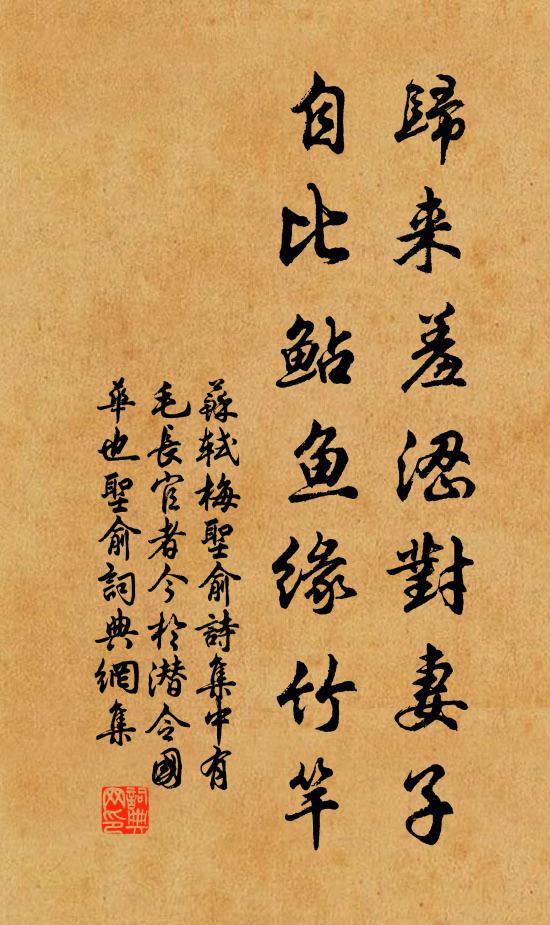 歸来羞澀對妻子
自比鮎魚緣竹竿
蘇軾梅聖俞詩集中有
毛長官者今於潛令國
華也聖俞詞典網集
詞典網印